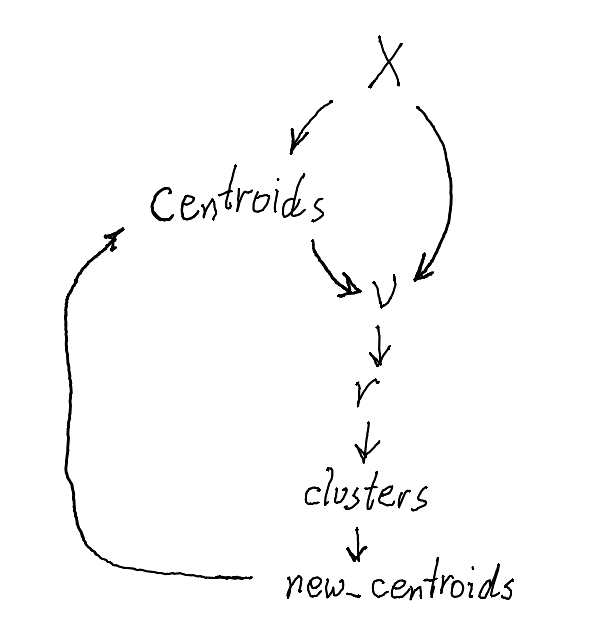 X
Centroids
ν
r
clusters
new_centroids